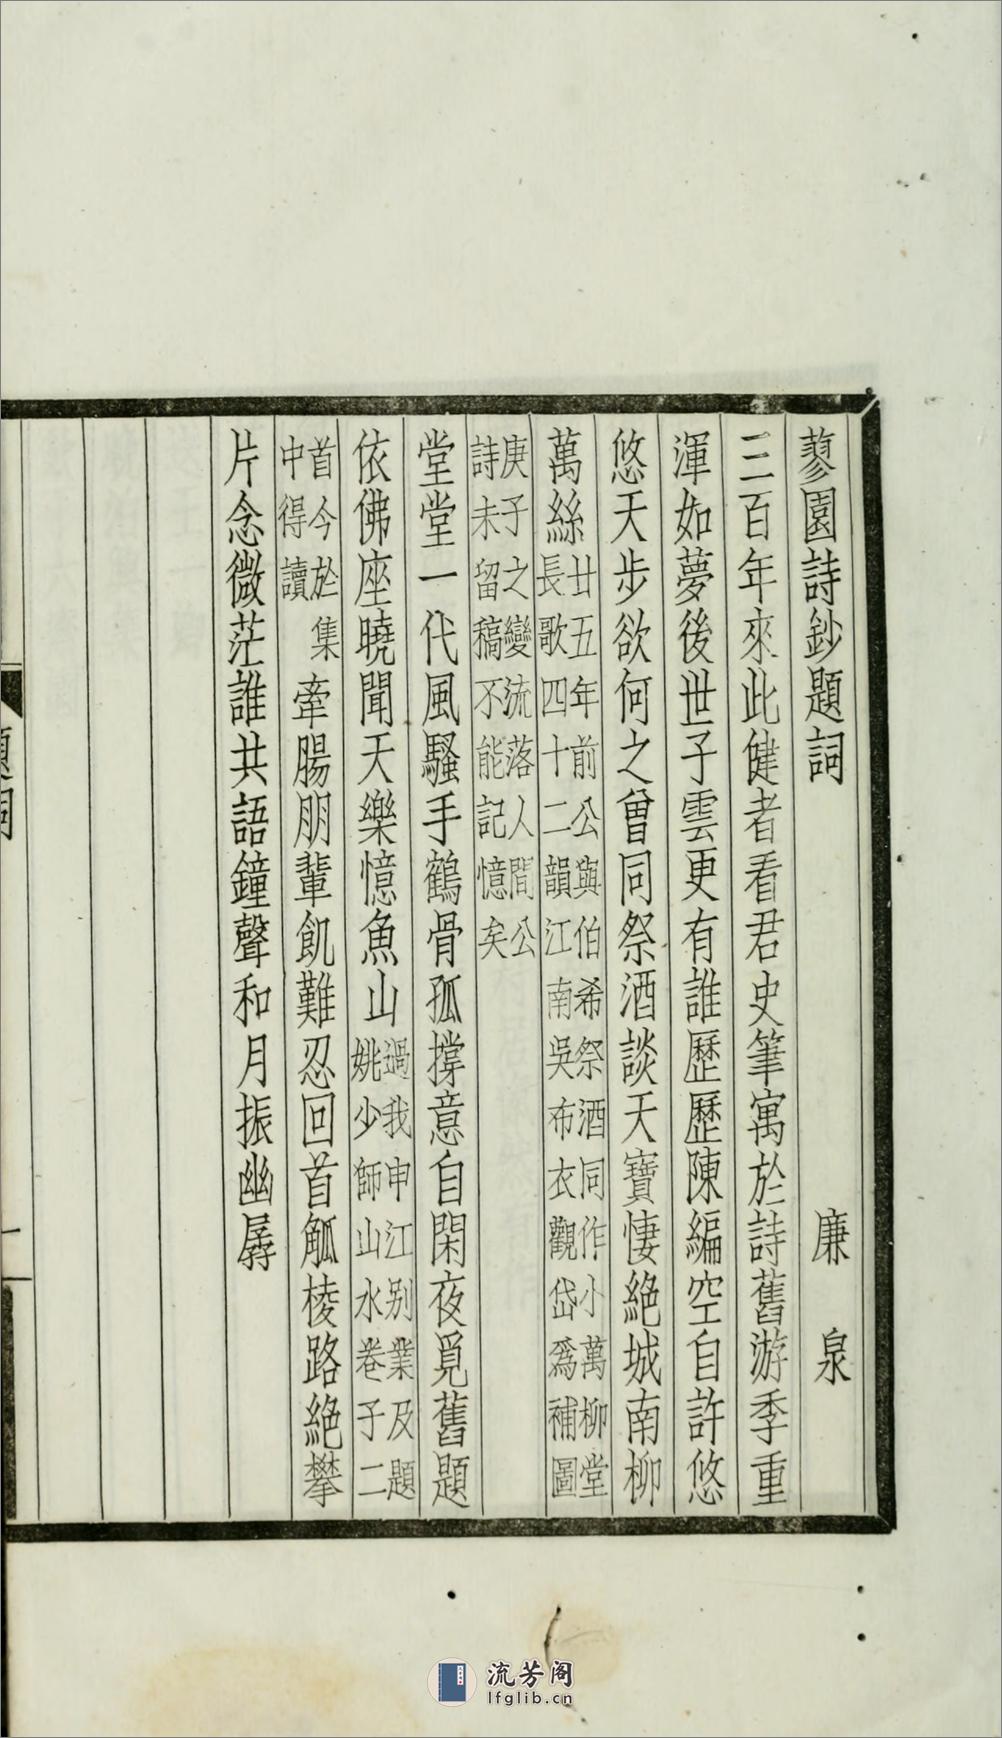 蓼園詩鈔題詞　廉泉
三百年來此健者看君史筆寓於詩舊游季重
渾如夢後世子雲更有誰歷歷陳編空自許悠
悠天步欲何之曾同祭酒談天寶悽絕城南柳
萬絲廿五年前公與伯希祭酒同作小萬柳堂
長歌四十二韻江南吳布衣觀岱爲補圖
庚子之變流落人間公
詩未留稿不能記憶矣
堂堂一代風騷手鶴骨孤撐意自閑夜覓舊題
依佛座曉聞天樂憶魚山過我申江别業及題
姚少師山水卷子二
首今於集
中得讀
牽腸朋輩飢難忍回首觚棱路絕攀
片念微茫誰共語鐘聲和月振幽孱
題詞
一
流芳阁
lfglib.cn